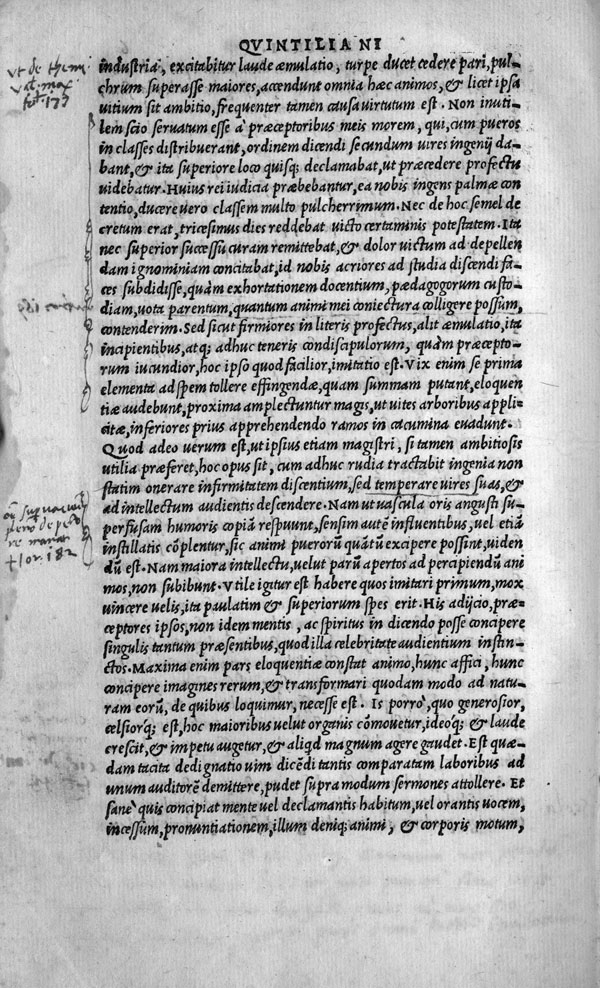 QVINTILIANI
industria, excitabitur laude æmulatio, turpe ducet cedere pari, pul-
chrum superasse maiores, accendunt omnia hæc animos, & licet ipsa
uitium sit ambitio, frequenter tamen causa uirtutum est. Non inuti-
lem scio seruatum esse à præceptoribus meis morem, qui, cum pueros
in classes distribuerant, ordinem dicendi secundum uires ingenij da-
bant, & ita superiore loco quisq; declamabat, ut præcedere profectu
uidebatur. Huius rei iudicia præbebantur, ea nobis ingens palmæ con
tentio, ducere uero classem multo pulcherrimum. Nec de hoc semel de
cretum erat, tricesimus dies reddebat uicto certaminis potestatem. Ita
nec superior successu curam remittebat, & dolor uictum ad depellen
dam ignominiam concitabat, id nobis acriores ad studia discendi fa-
ces subdidisse, quàm exhortationem docentium, pædagogorum custo-
diam, uota parentum, quantum animi mei coniectura colligere possum,
contenderim. Sed sicut firmiores in literis profectus, alit æmulatio, ita
incipientibus, atq; adhuc teneris condiscipulorum, quàm præcepto-
rum iucundior, hoc ipso quod facilior, imitatio est. Vix enim se prima
elementa ad spem tollere effingendæ, quam summam putant, eloquen
tiæ audebunt, proxima amplectuntur magis, ut uites arboribus appli-
citæ, inferiores prius apprehendendo ramos in cacumina euadunt.
Quod adeo uerum est, ut ipsius etiam magistri, si tamen ambitiosis
utilia præferet, hoc opus sit, cum adhuc rudia tractabit ingenia non
statim onerare infirmitatem discentium, sed temperare uires suas, &
ad intellectum audientis descendere. Nam ut uascula oris angusti su-
perfusam humoris copiã respuunt, sensim autẽ influentibus, uel etiã
instillatis cõplentur, sic animi puerorũ quãtũ excipere possint, uiden
dũ est. Nam maiora intellectu, uelut parũ apertos ad percipiendũ ani
mos, non subibunt. Vtile igitur est habere quos imitari primum, mox
uincere uelis, ita paulatim & superiorum spes erit. His adijcio, præ-
ceptores ipsos, non idem mentis, ac spiritus in dicendo posse concipere
singulis tantum præsentibus, quod illa celebritate audientium instin-
ctos. Maxima enim pars eloquentiæ constat animo, hunc affici, hunc
concipere imagines rerum, & transformari quodam modo ad natu-
ram eorũ, de quibus loquimur, necesse est. Is porrò, quo generosior,
celsiorq; est, hoc maioribus uelut organis cõmouetur, ideoq; & laude
crescit, & impetu augetur, & aliqd magnum agere gaudet. Est quæ-
dam tacita dedignatio uim dicẽdi tantis comparatam laboribus ad
unum auditorẽ demittere, pudet supra modum sermones attollere. Et
sanè quis concipiat mente uel declamantis habitum, uel orantis uocem,
incessum, pronuntiationem, illum deniq; animi, & corporis motum,